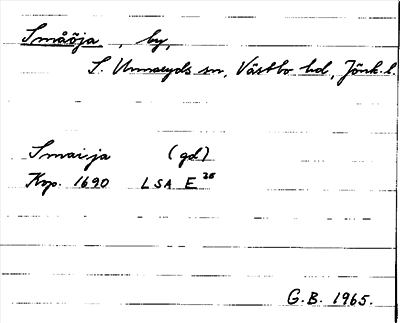 Småöja, by,
S. Unnaryds sn, Västbo hd, Jönk. l.
Smaiija (gd)
Kop. 1690 LSA E 36
G.B. 1965.